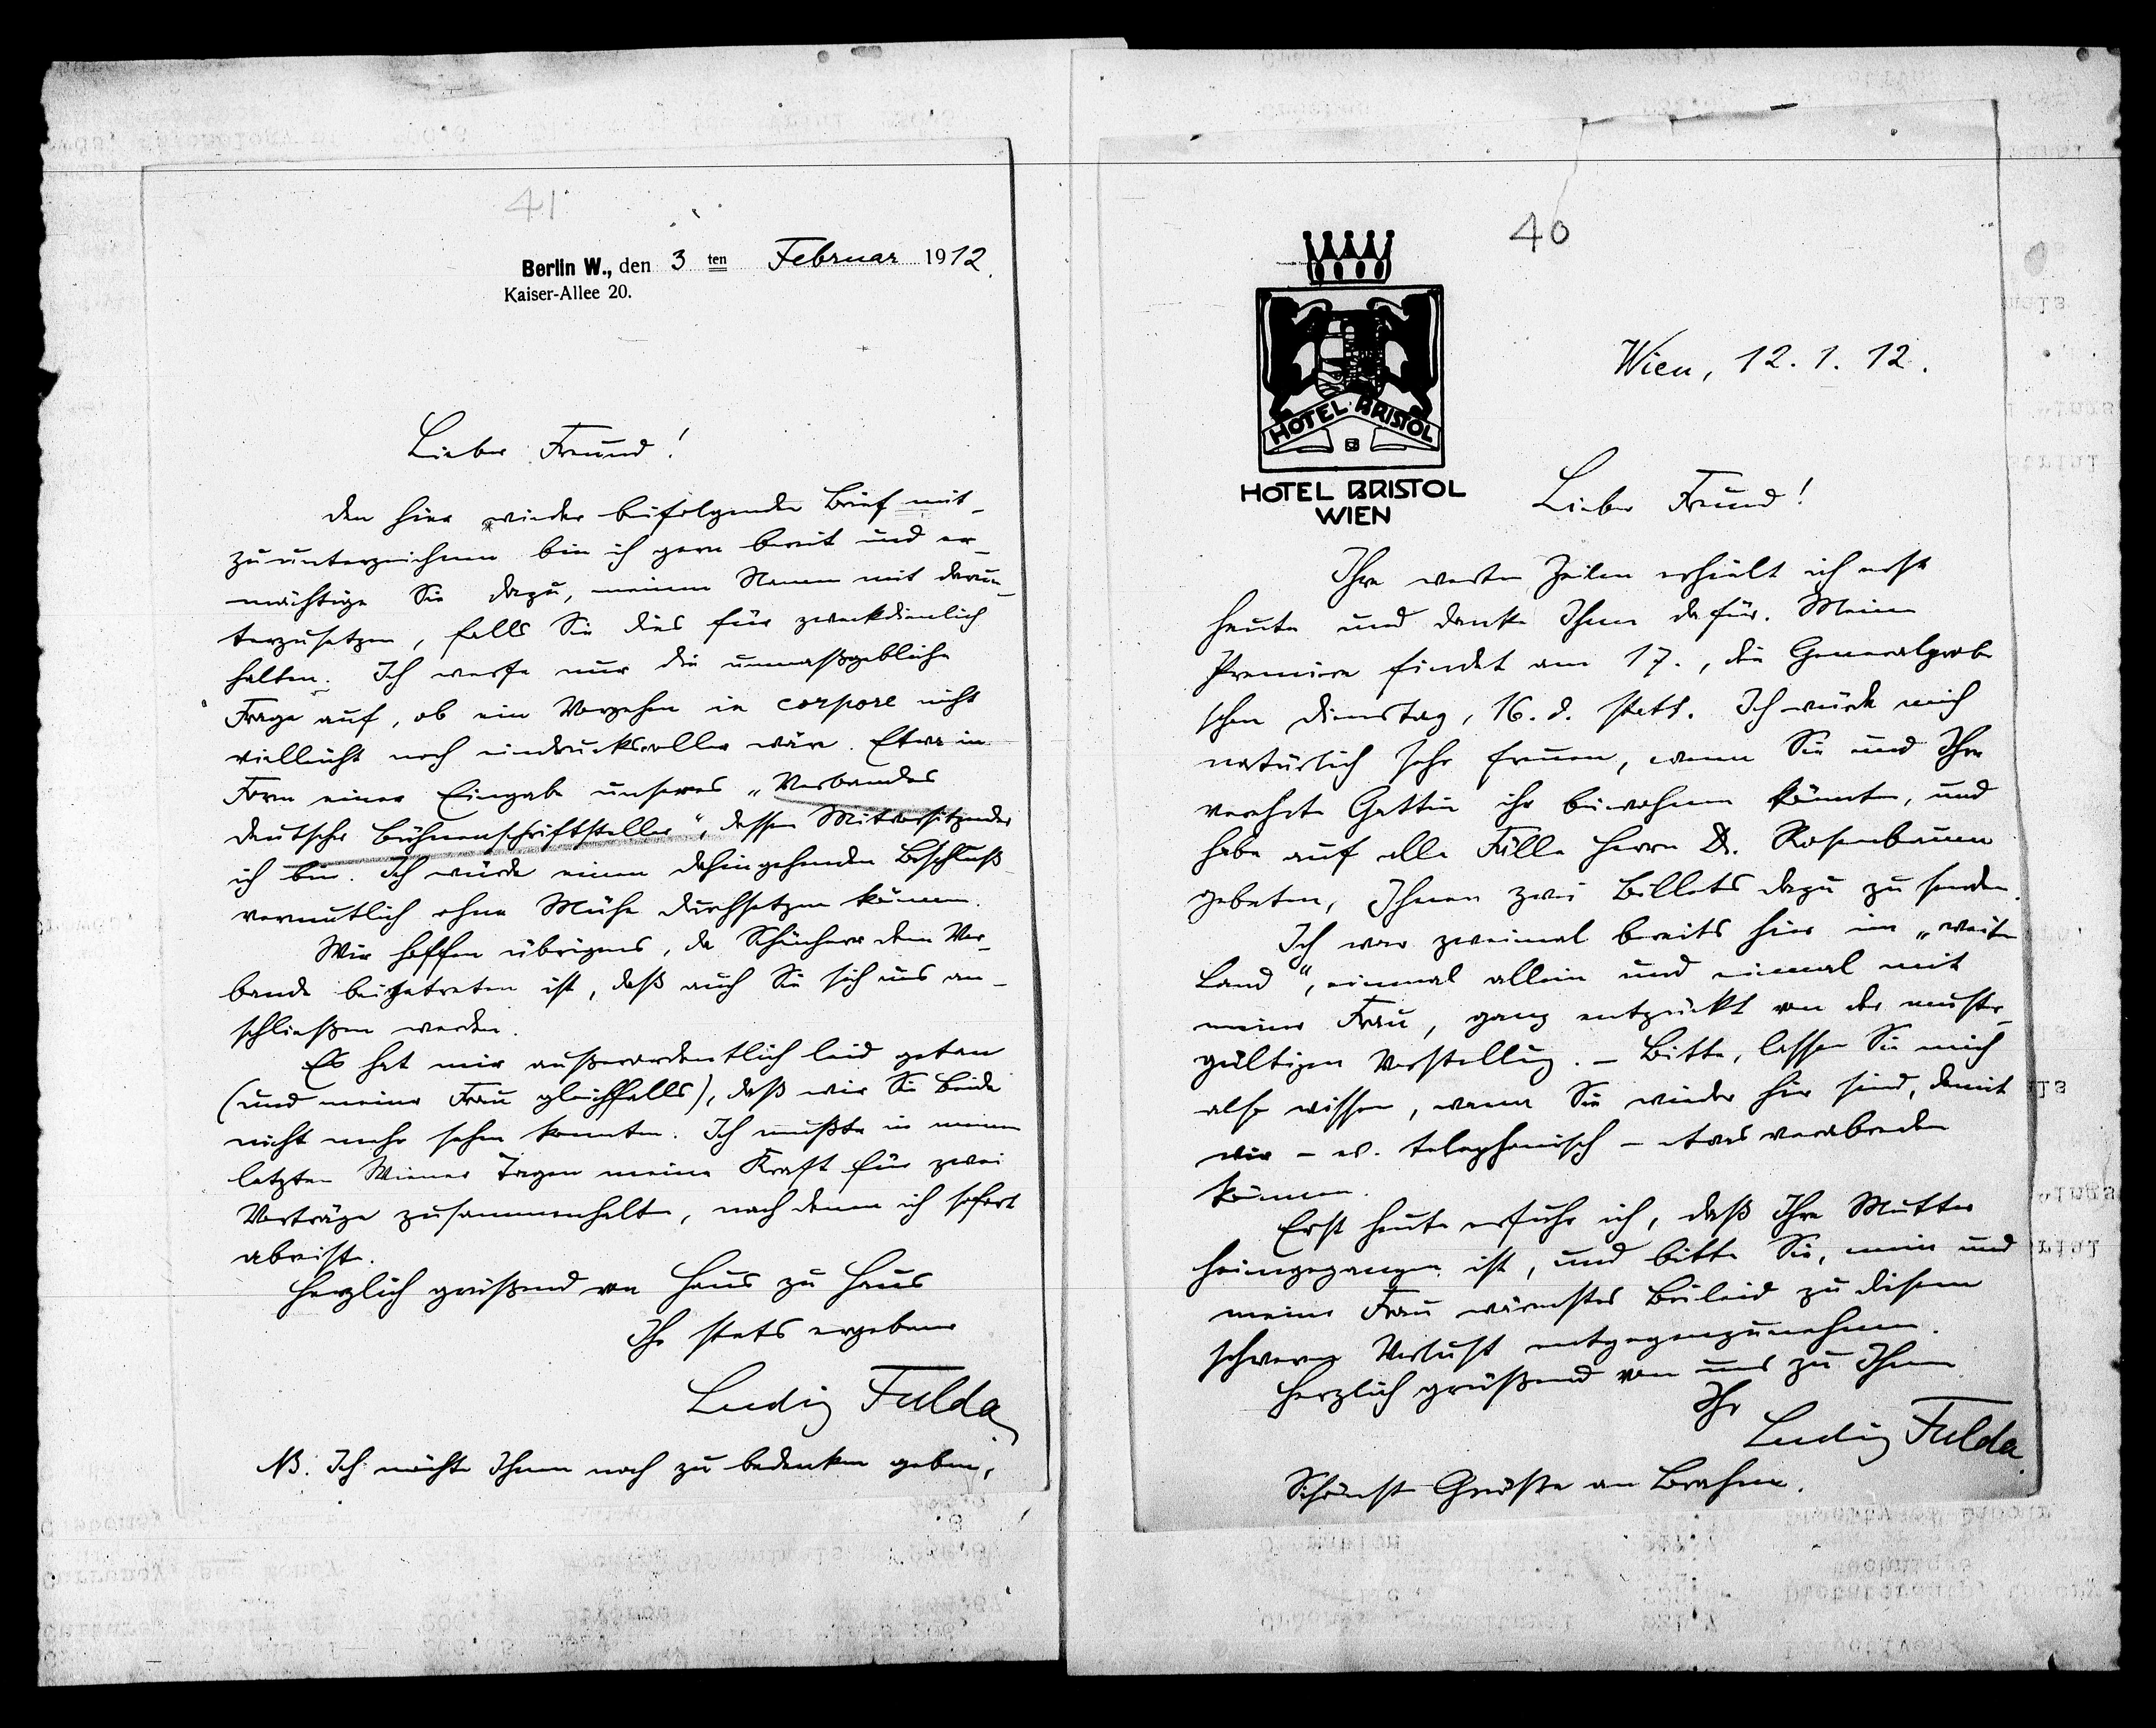 41
Berlin W., den 3 ten Februar 1912.
Kaiser-Allee 20.
Lieber Freund!
Den hier wieder beifolgenden Brief mit-
zuunterzeichnen bin ich gern bereit und er-
mächtige Sie dazu, meinen Namen mit darun-
terzusetzen, falls Sie dies für zweckdienlich
halten. Ich werfe nur die unmaßgebliche
Frage auf, ob ein Vorgehen in corpore nicht
vielleicht noch eindrucksvoller wäre. Etwa in
Form einer Eingabe unseres „Verbandes
deutscher Bühnenschriftsteller“, dessen Mitvorsitzender
ich bin. Ich würde einen dahingehenden Beschluß
vermutlich ohne Mühe durchsetzen können.
Wir hoffen übrigens, da Schönherr dem Ver-
bande beigetreten ist, daß auch Sie sich uns an-
schließen werden.
Es hat mir außerordentlich leid getan
(und meiner Frau gleichfalls), daß wir Sie Beide
nicht mehr sehen konnten. Ich mußte in meinen
letzten Wiener Tagen meine Kraft für zwei
Vorträge zusammenhalten, nach denen ich sofort
abreiste.
Herzlich grüßend von Haus zu Haus
Ihr stets ergebener
Ludwig Fulda
NB. Ich möchte Ihnen noch zu bedenken geben,
40
HOTEL BRISTOL
HOTEL BRISTOL
WIEN
Wien, 12. 1. 12.
Lieber Freund!
Ihre werten Zeilen erhielt ich erst
heute und danke Ihnen dafür. Meine
Premiere findet am 17., die Generalprobe
schon Dienstag, 16. d. statt. Ich würde mich
natürlich sehr freuen, wenn Sie und Ihre
verehrte Gattin ihr beiwohnen könnten, und
habe auf alle Fälle Herrn Dr. Rosenbaum
gebeten, Ihnen zwei Billets dazu zu senden.
Ich war zweimal bereits hier im „weiten
Land“, einmal allein und einmal mit
meiner Frau, ganz entzückt von der muster-
gültigen Vorstellung. – Bitte, lassen Sie mich
also wissen, wann Sie wieder hier sind, damit
wir – ev. telephonisch – etwas verabreden
können.
Erst heute erfuhr ich, daß Ihre Mutter
heimgegangen ist, und bitte Sie, mein und
meiner Frau wärmstes Beileid zu diesem
schweren Verlust entgegenzunehmen.
Herzlich grüßend von uns zu Ihnen
Ihr
Ludwig Fulda.
Schönste Grüße an Brahm.